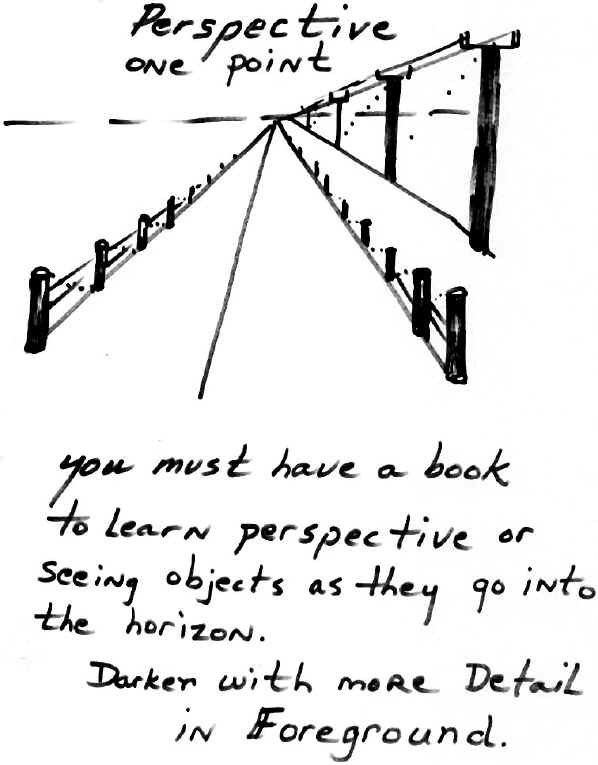 Perspective
one point
you must have a book
to learn perspective or
seeing objects as they go into
the horizon.
Darker with more Detail
in Foreground.